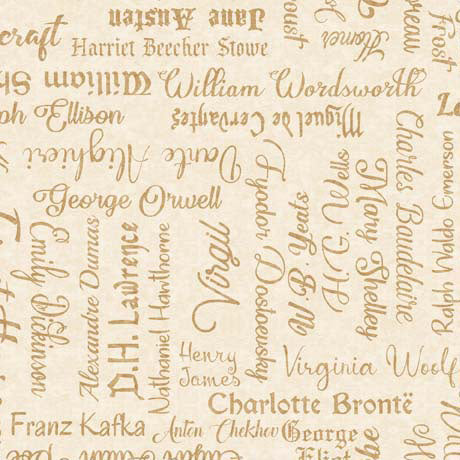 craft
Jane Austen
Harriet Beecher Stowe
oust
Homer
eau
Frost
William Sh
William Wordsworth
ph Ellison
Miguel de Cervantes
Dante Alighieri
George Orwell
Emily Dickinson
Alexandre Dumas
D.H. Lawrence
Nathaniel Hawthorne
Virgil
Fyodor Dostoevsky
W. B. Yeats
H.G. Wells
Mary Shelley
Charles Baudelaire
Ralph Waldo Emmerson
Henry
James
Virginia Woolf
Charlotte Brontë
Franz Kafka
Anton Chekhov
George
Eliot